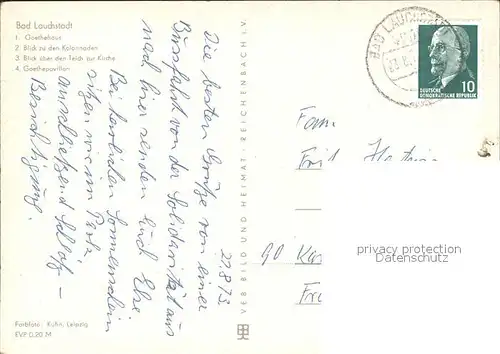 Bad Lauchstädt
1. Goethehaus
2. Blick zu den Kolonnaden
3. Blick über den Teich zur Kirche
4. Goethepavillon
22.8.73
Die besten Grüße von einer
Busfahrt von der Solidarität aus
nach hier senden Euch Else
Bei herrlichem Sonnenschein
sitzen wir im Park
anschließend Schloß-
Besichtigung.
Farbfoto: Kuhn, Leipzig
EVP 0,20 M
VEB BILD UND HEIMAT · REICHENBACH i. V.
BAD LAUCHSTÄDT
DEUTSCHE
DEMOKRATISCHE REPUBLIK
10
Fam
90
privacy protection
Datenschutz